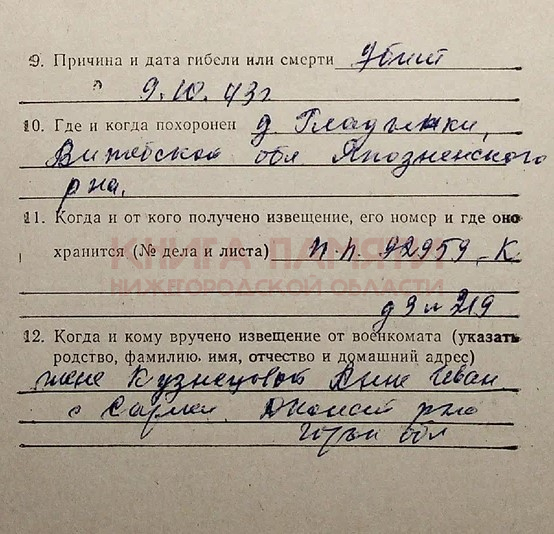 9. Причина и дата гибели или смерти Убит
9.10.43г
10. Где и когда похоронен д. Гладышки,
Витебской обл Лиозненского
р на.
11. Когда и от кого получено извещение, его номер и где оно
хранится (№ дела и листа) п.п. 92959-К
КНИГА ПАМЯТИ
НИЖЕГОРОДСКОЙ ОБЛАСТИ
д 9 л 219
12. Когда и кому вручено извещение от военкомата (указать
родство, фамилию, имя, отчество и домашний адрес)
жене Кузнецовой Анне Иван
с Сарлей р на
обл